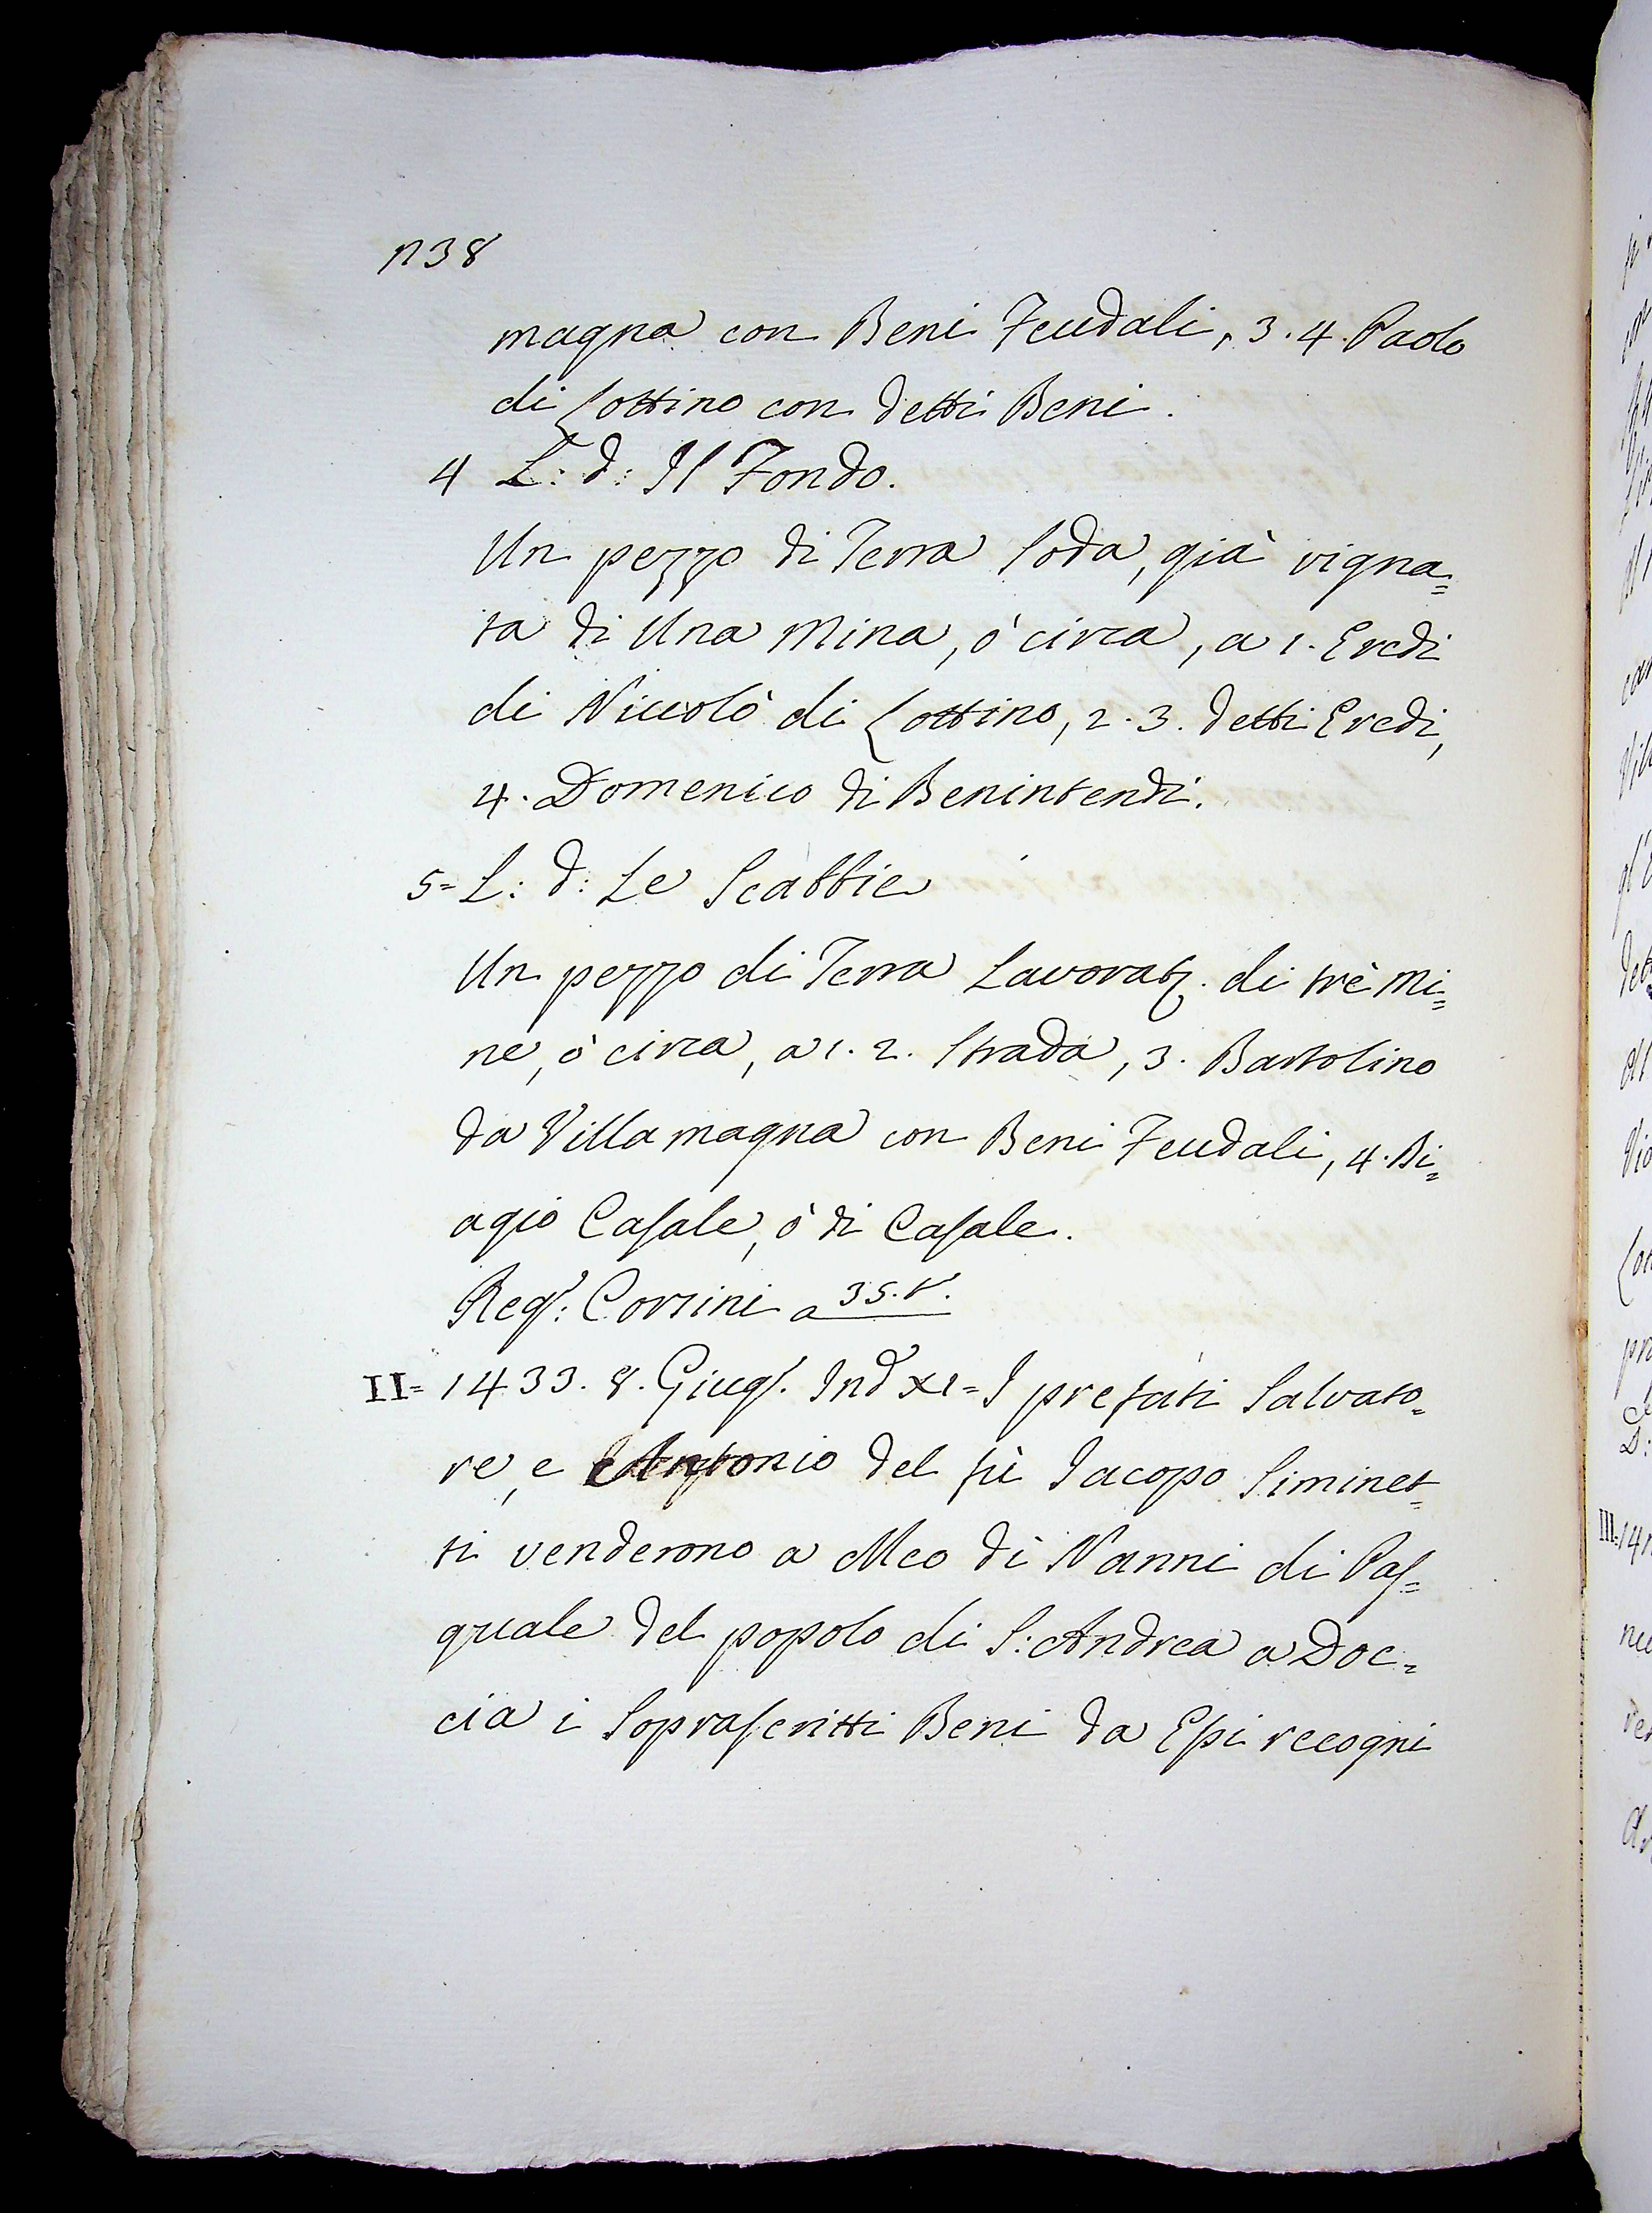 1238
magna con Beni Feudali, 3. 4. Paolo
di Lottino con detti Beni.
4 L: d: Il Fondo.
Un pezzo di Terra soda, già vigna=
ta di Una Mina, ò circa, a 1. Eredi
di Niccolò di Lottino, 2. 3. detti Eredi,
4. Domenico di Benintendi.
5= L: d: Le Scabbie
Un pezzo di Terra Lavorat. di trè Mi=
ne, ò circa, a 1. 2. Strada, 3. Bartolino
da Villamagna con Beni Feudali, 4. Bi=
agio Casale, ò di Casale.
Reg: Corsini a 35. t.
II= 1433. 8. Giug. Ind XI= I prefati Salvato=
re, e Antonio del fù Jacopo Siminet=
ti venderono a Meo di Nanni di Pas=
quale del popolo di S: Andrea a Doc=
cia i soprascritti Beni da Essi recogni